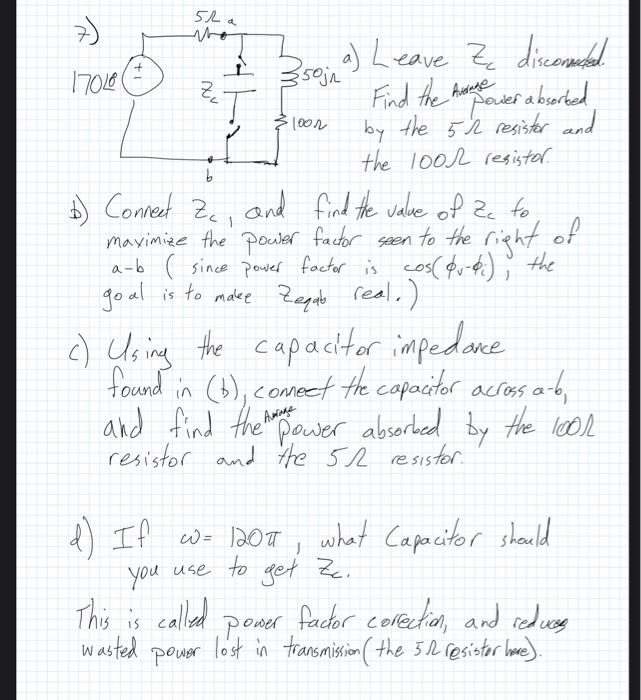 7)
5Ω a
170∠0°
+
-
Zc
50jΩ
100Ω
b
a) Leave Zc disconnected.
Find the Average power absorbed
by the 5Ω resistor and
the 100Ω resistor.
b) Connect Zc, and find the value of Zc to
maximize the power factor seen to the right of
a-b ( since power factor is cos(ϕv-ϕi), the
goal is to make Zeqab real.)
c) Using the capacitor impedance
found in (b), connect the capacitor across a-b,
and find the Average power absorbed by the 100Ω
resistor and the 5Ω resistor.
d) If ω= 120π, what Capacitor should
you use to get Zc.
This is called power factor correction, and reduces
wasted power lost in transmission (the 5Ω resistor here).